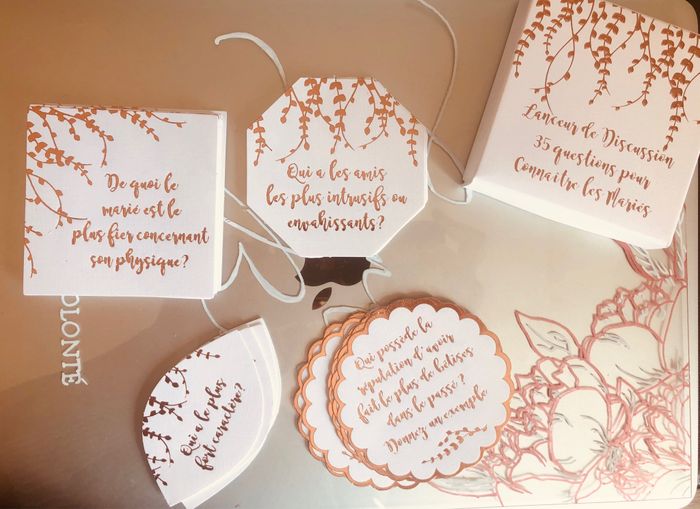 Lanceur de Discussion
35 questions pour
Connaître les Mariés
De quoi le
marié est le
plus fier concernant
son physique?
Qui a les amis
les plus intrusifs ou
envahissants?
OLONTÉ
Qui a le plus
fort caractère?
Qui possède la
réputation d'avoir
fait le plus de bêtises
dans le passé ?
Donnez un exemple